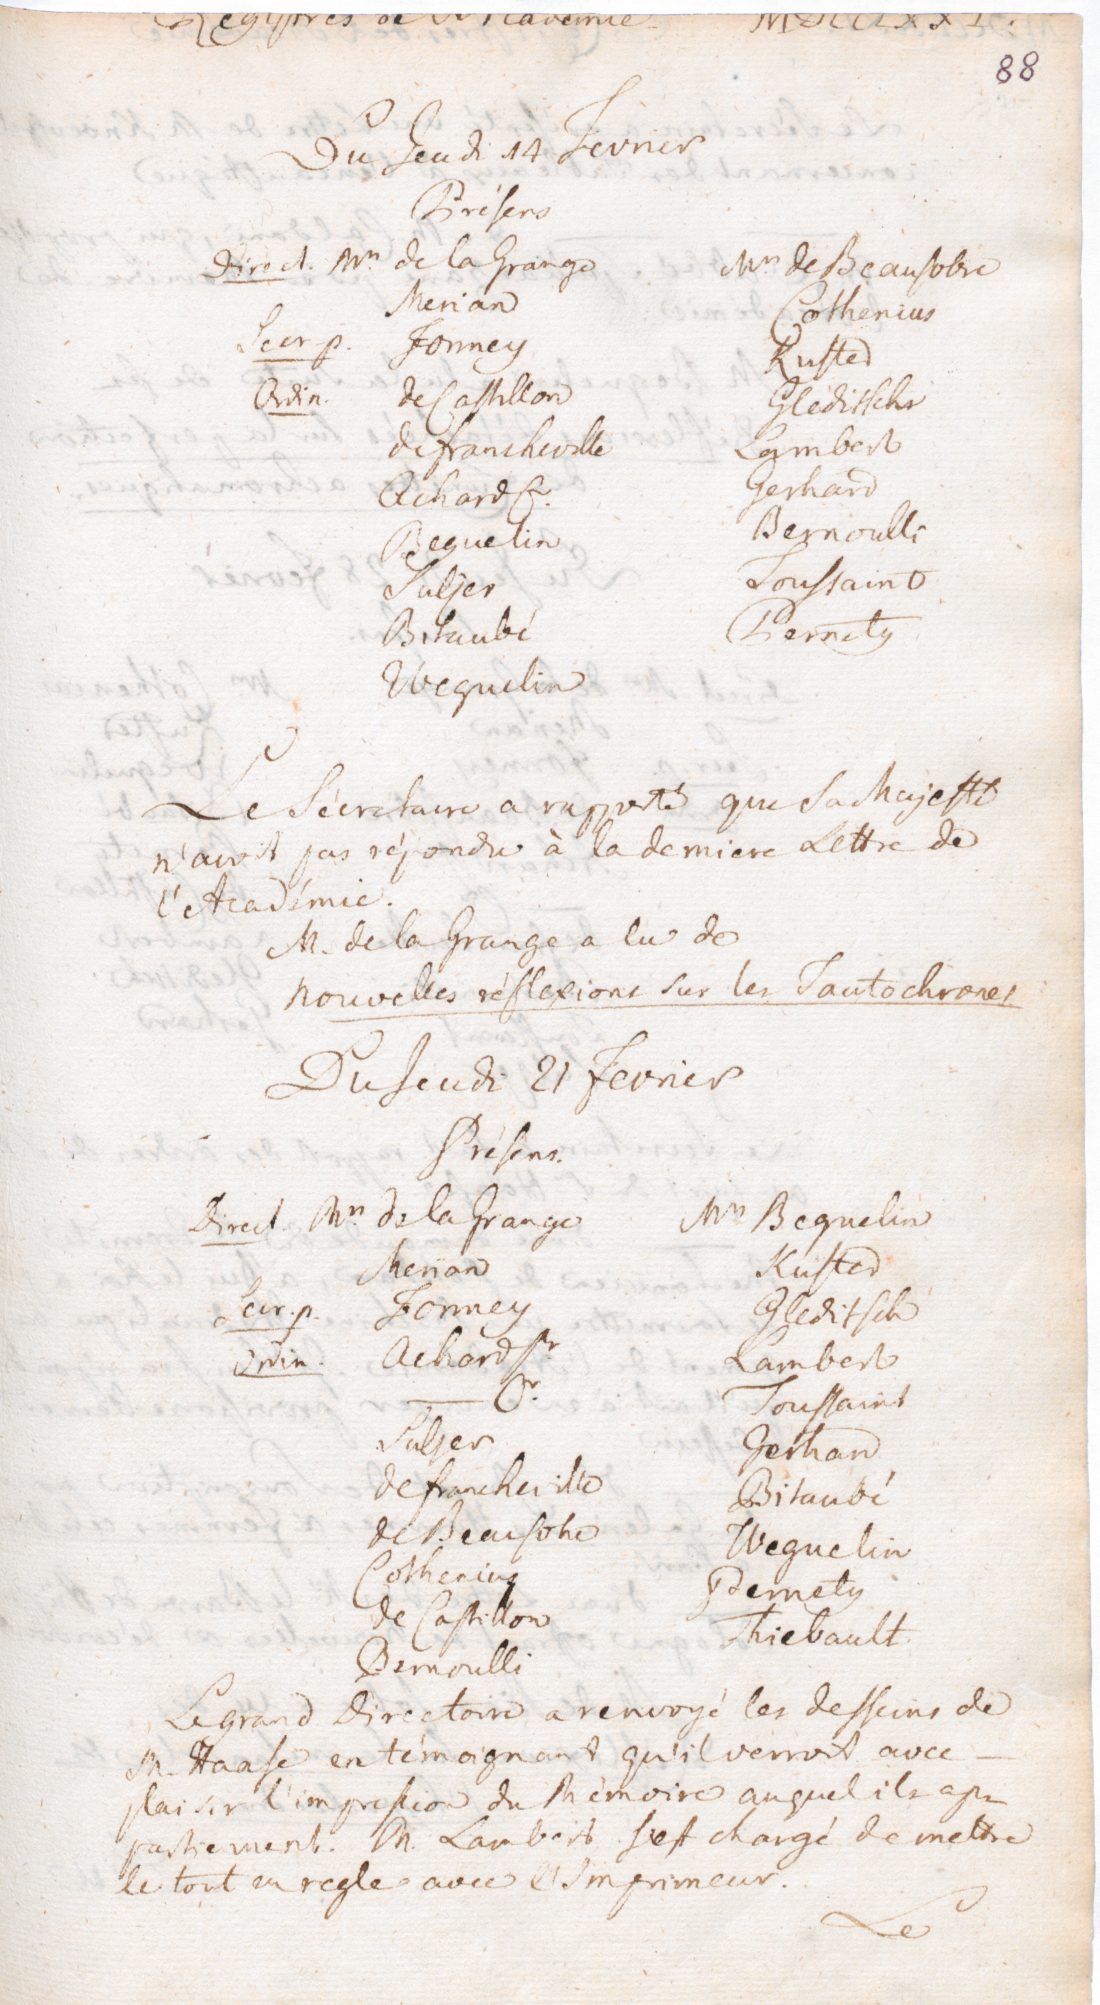 Registres de l'Academie MDCCLXXI.
88
Du Jeudi 14 Fevrier
Présens
Direct. Mrs. de la Grange
Merian
Secr. p. Formey
Ordin. de Castillon
de francheville
Achard Cr.
Beguelin
Sulzer
Bitaubé
Weguelin
Mrs de Beausobre
Cothenius
Kuster
Gleditsch
Lambert
Gerhard
Bernoulli
Toussaint
Pernety
Le Sécretaire a rapporté que Sa Majesté
n'avoit pas répondu à la derniere Lettre de
l'Académie.
M. de la Grange a lu de
nouvelles réflexions sur les Tautochrones
Du Jeudi 21 Fevrier
Présens.
Direct Mrs. de la Grange
Merian
Secr. p. Formey
Ordin. Achard Pr.
—— Cr.
Sulzer
de francheville
de Beausobre
Cothenius
de Castillon
Bernoulli
Mrs Beguelin
Kuster
Gleditsch
Lambert
Toussaint
Gerhard
Bitaubé
Weguelin
Pernety
Thiebault.
Le grand Directoire a renvoyé les desseins de
M. Haase en témoignant qu'il verroit avec
plaisir l'impression du Mémoire auquel ils ap=
partiennent. M. Lambert s'est chargé de mettre
le tout en regle avec l'Imprimeur.
Le